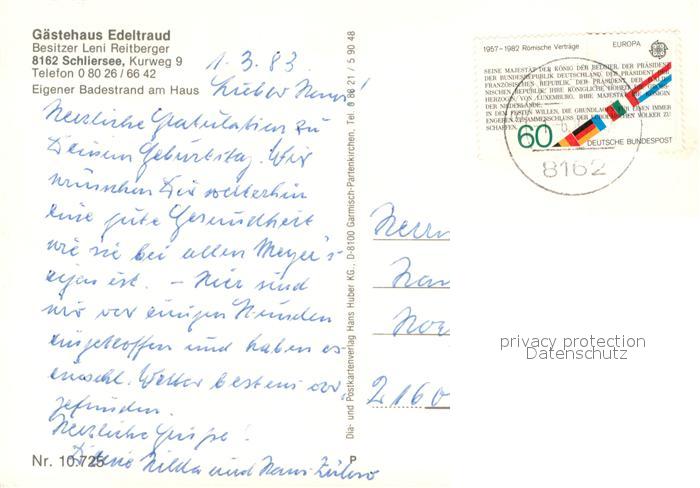 Gästehaus Edeltraud
Besitzer Leni Reitberger
8162 Schliersee, Kurweg 9
Telefon 0 80 26 / 66 42
Eigener Badestrand am Haus
1.3.83.
Lieber Hans!
Herzliche Gratulation zu
Deinem Geburtstag. Wir
wünschen Dir weiterhin
eine gute Gesundheit
wie sie bei allen Meyer's
eigen ist. – Hier sind
wir vor einigen Stunden
eingetroffen und haben es
Wetter bestens vor-
gefunden.
Herzliche Grüße!
Hilda und Hans
Nr. 10.725
Dia- und Postkartenverlag Hans Huber KG., D-8100 Garmisch-Partenkirchen, Tel. 0 88 21 / 5 90 48
P
1957–1982 Römische Verträge
EUROPA
SEINE MAJESTÄT DER KÖNIG DER BELGIER, DER PRÄSIDENT
DER BUNDESREPUBLIK DEUTSCHLAND, DER PRÄSIDENT DER
FRANZÖSISCHEN REPUBLIK, DER PRÄSIDENT DER ITALIE-
NISCHEN REPUBLIK, IHRE KÖNIGLICHE HOHEIT DIE GROSS-
HERZOGIN VON LUXEMBURG, IHRE MAJESTÄT DIE KÖNIGIN
DER NIEDERLANDE,
IN DEM FESTEN WILLEN, DIE GRUNDLAGEN FÜR EINEN IMMER
ENGEREN ZUSAMMENSCHLUSS DER EUROPÄISCHEN VÖLKER ZU
SCHAFFEN,
60
DEUTSCHE BUNDESPOST
8162
Herrn
Han
2160
privacy protection
Datenschutz